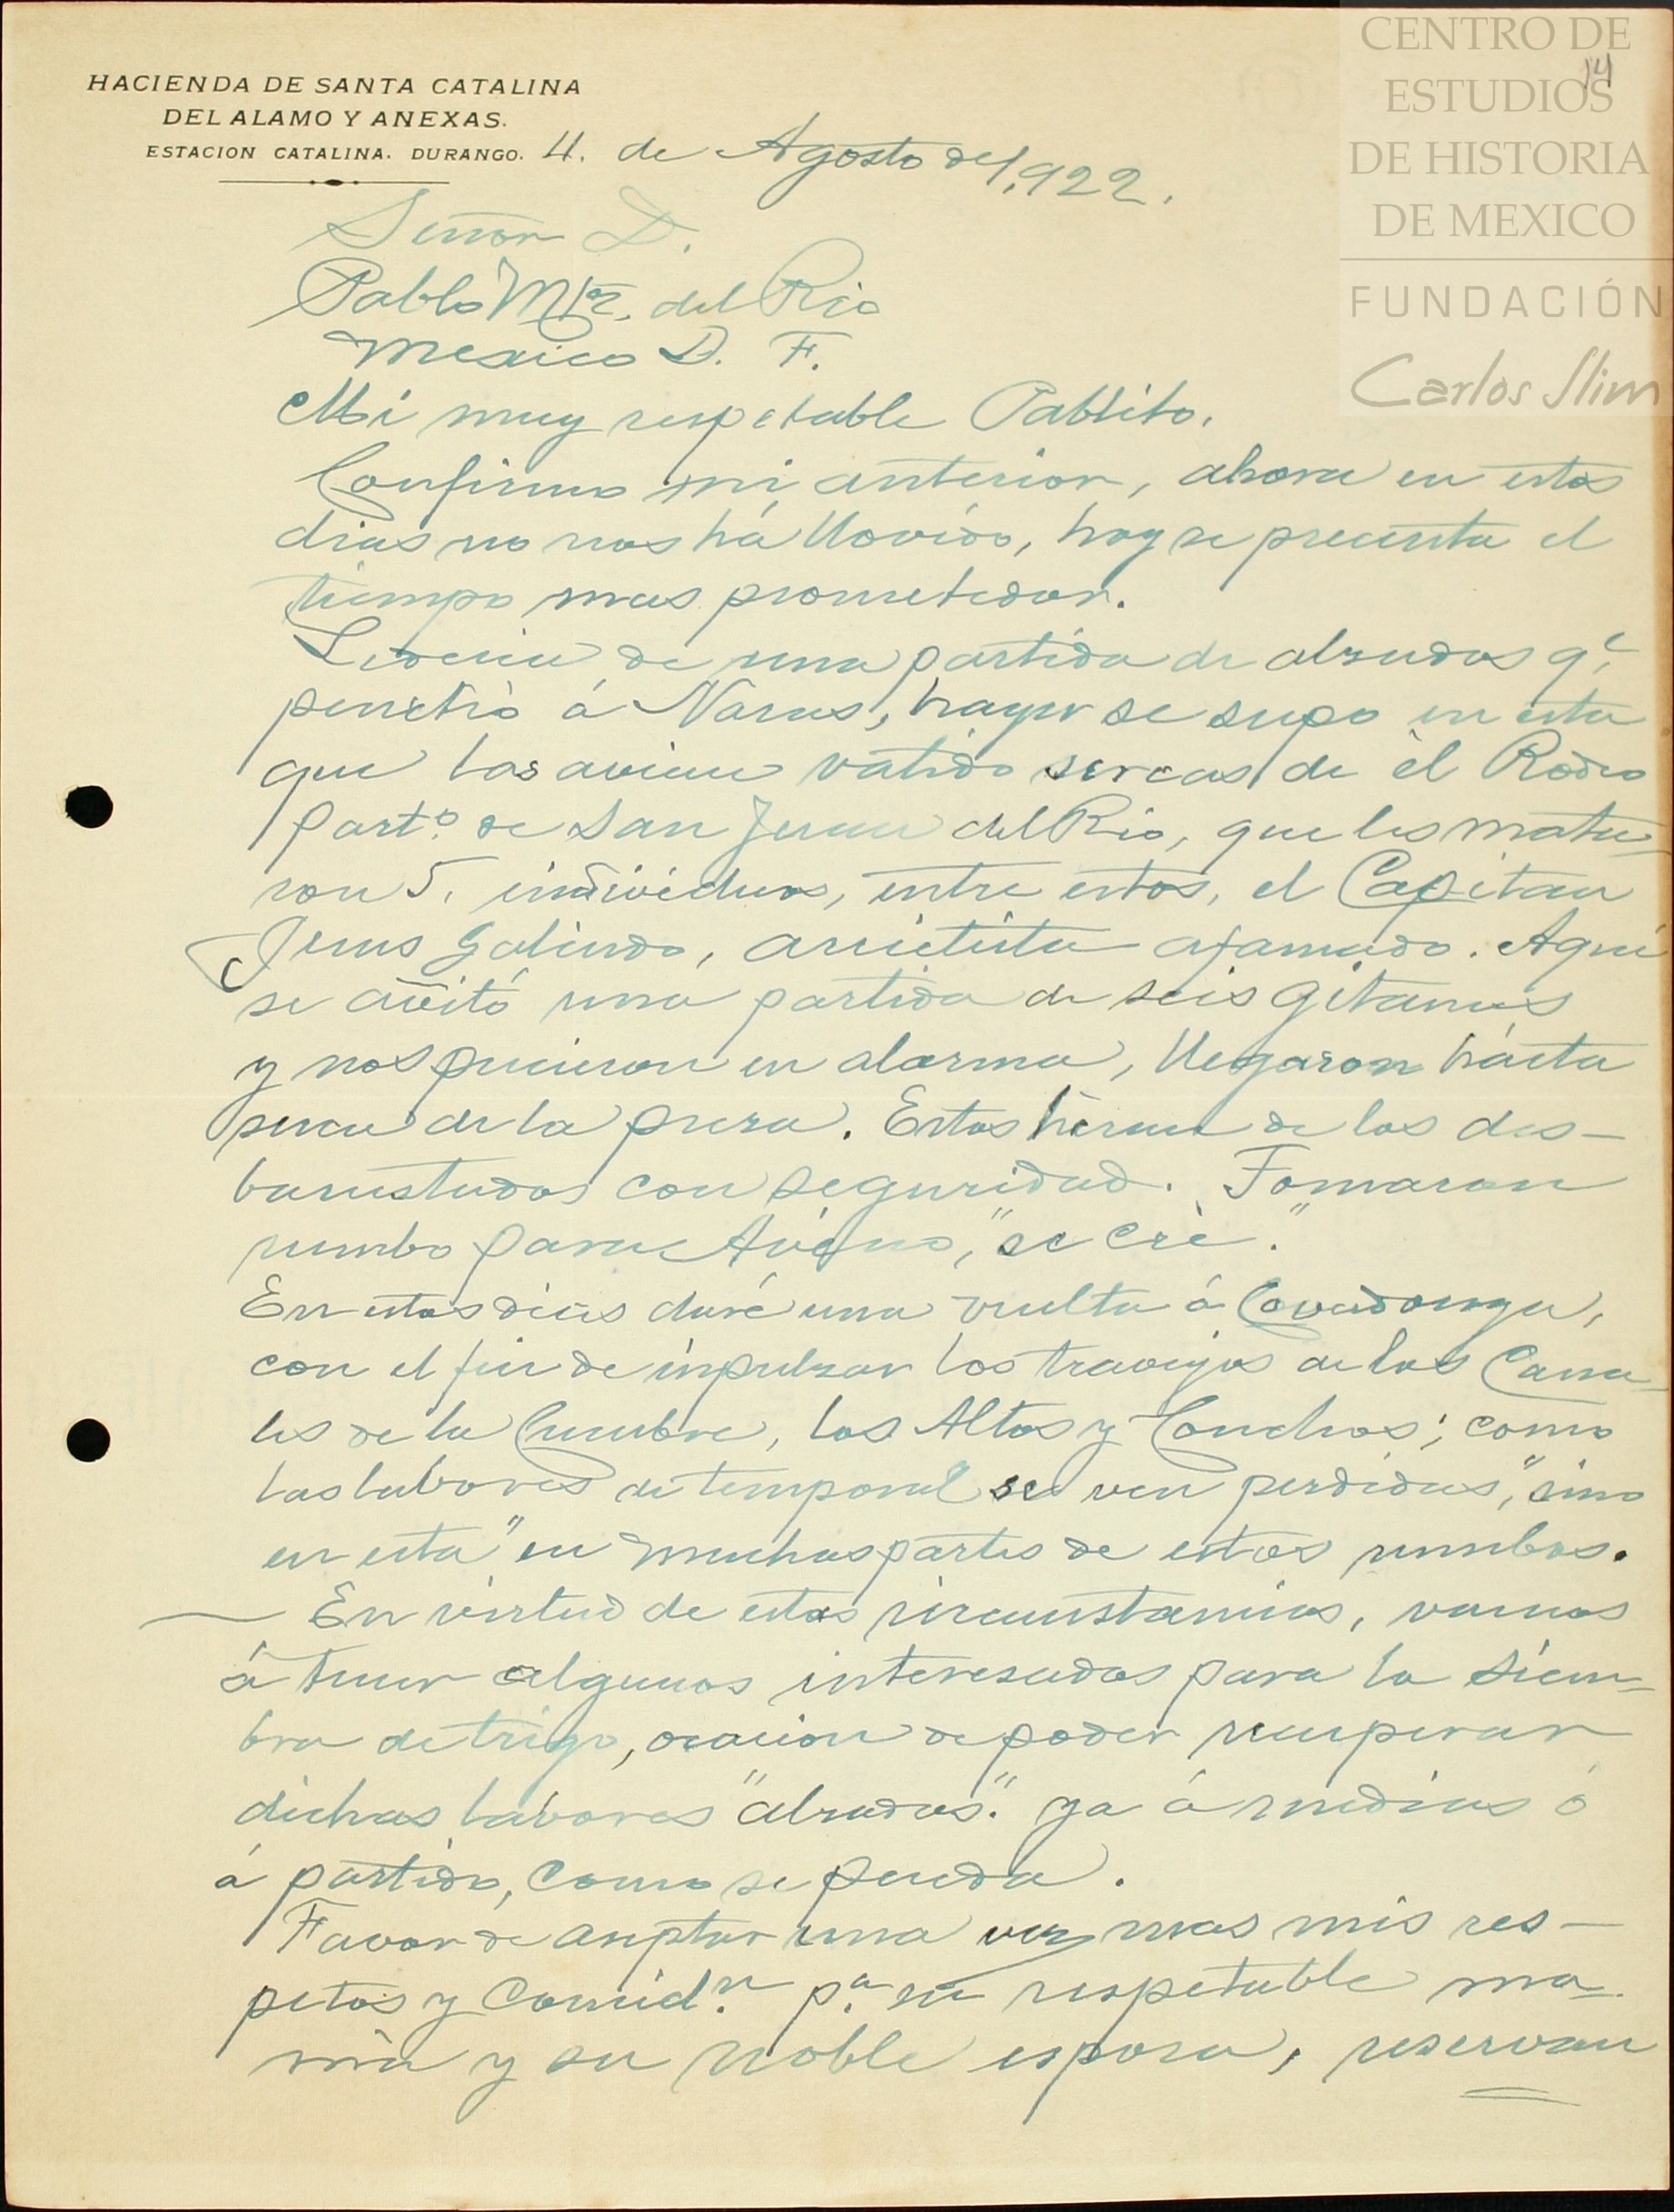 CENTRO DE
ESTUDIOS
DE HISTORIA
DE MEXICO
FUNDACIÓN
Carlos Slim
14
HACIENDA DE SANTA CATALINA
DEL ALAMO Y ANEXAS.
ESTACION CATALINA. DURANGO. 4. de Agosto de 1,922.
Señor D.
Pablo Mtz. del Rio
Mexico D. F.
Mi muy respetable Pablito.
Confirmo mi anterior, ahora en estos
dias no nos há llovido, hoy se precenta el
tiempo mas prometedor.
Le decia de una partida de alzados qe.
penetró á Nazas, hayer se supo en esta
que los avian vatido sercas de el Rodeo
Parto. de San Juan del Rio, que les mata-
ron 5. individuos, entre estos, el Capitan
Jesus Galindo, arrietista afamado. Aqui
se avitó una partida de seis gitanos
y nos pucieron en alarma, llegaron hásta
serca de la presa. Estos héran de los des-
baratados con seguridad. Tomaron
rumbo para Avino, "se cré".
En estos dias daré una vuelta á Covadonga,
con el fin de inpulzar los travajos de los Cana-
les de la Cumbre, los Altos y Conchos; como
las labores de temporal se ven perdidas, "sino
en esta" en muchas partes de estos rumbos.
En virtud de estas sircunstancias, vamos
á tener algunos interesados para la siem-
bra de trigo, ocacion de poder recuperar
dichas labores "alzadas". ya á medias ó
á partido, como se pueda.
Favor de aseptar una vez mas mis res-
petos y Concidn. pa. su respetable ma-
má y su noble esposa, reservan